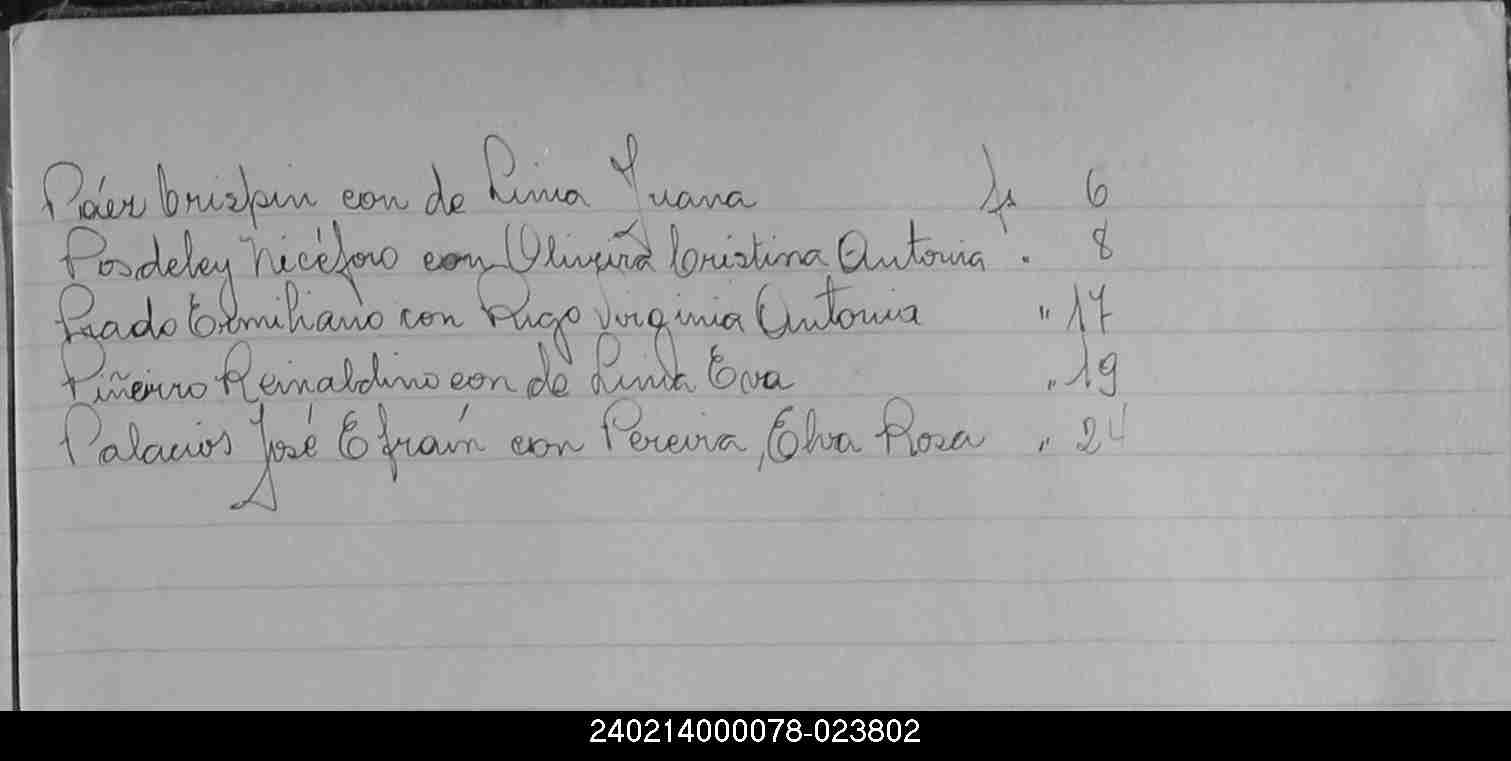 Páez Crispin con de Lima Juana fs 6
Posdeley Nicéforo con Oliveira Cristina Antonia " 8
Prado Ermiliano con Rigo Virginia Antonia " 17
Piñeiro Reinaldino con de Lima Eva " 19
Palacios José Efraín con Pereira, Elva Rosa " 24
240214000078-023802